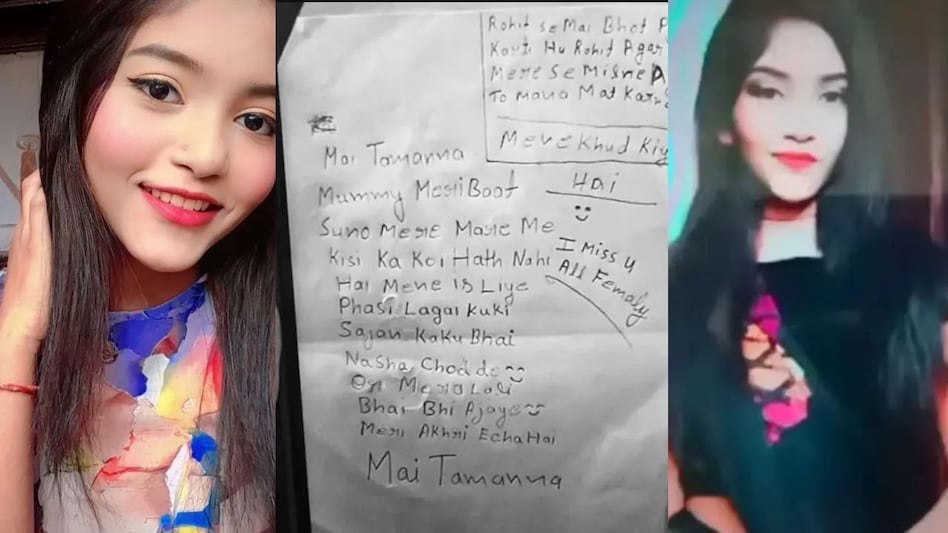 Rohit se Mai Bhot P
Karti Hu Rohit Agar
Mere Se Misne A
To mana Mat Karna
Mene Khud Kiy
Hai
Mai Tamanna
Mummy Meri Baat
Suno Mere Mare Me
Kisi Ka Koi Hath Nahi
Hai Mene is Liye
Phasi Lagai kuki
Sajan Kaku Bhai
Nasha Chodde
Mera
Bhai Bhi Ajaye
Meri Akhri Echa Hai
Mai Tamanna
I Miss u
All Femaly